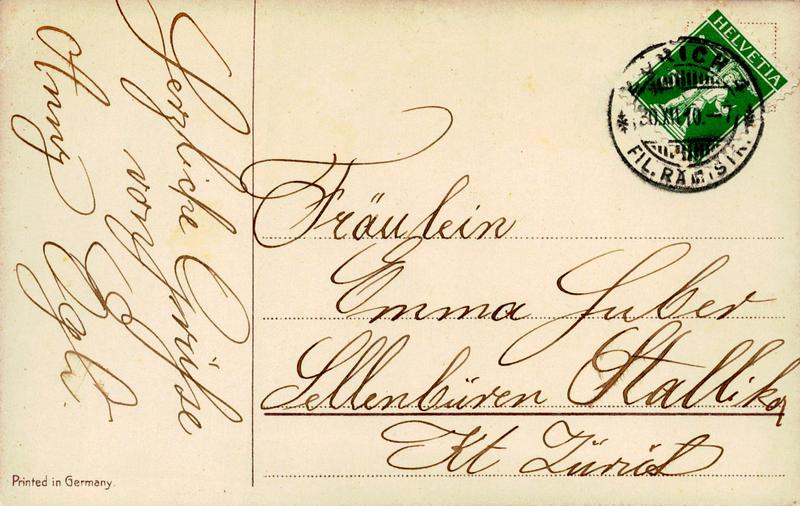 Herzliche Grüsse
von
Anny Egli.
Fräulein
Emma Huber
Sellenbüren Stallikon
Kt Zürich
HELVETIA
ZÜRICH
30.III.10.—7
FIL. RÄMISTR.
Printed in Germany.